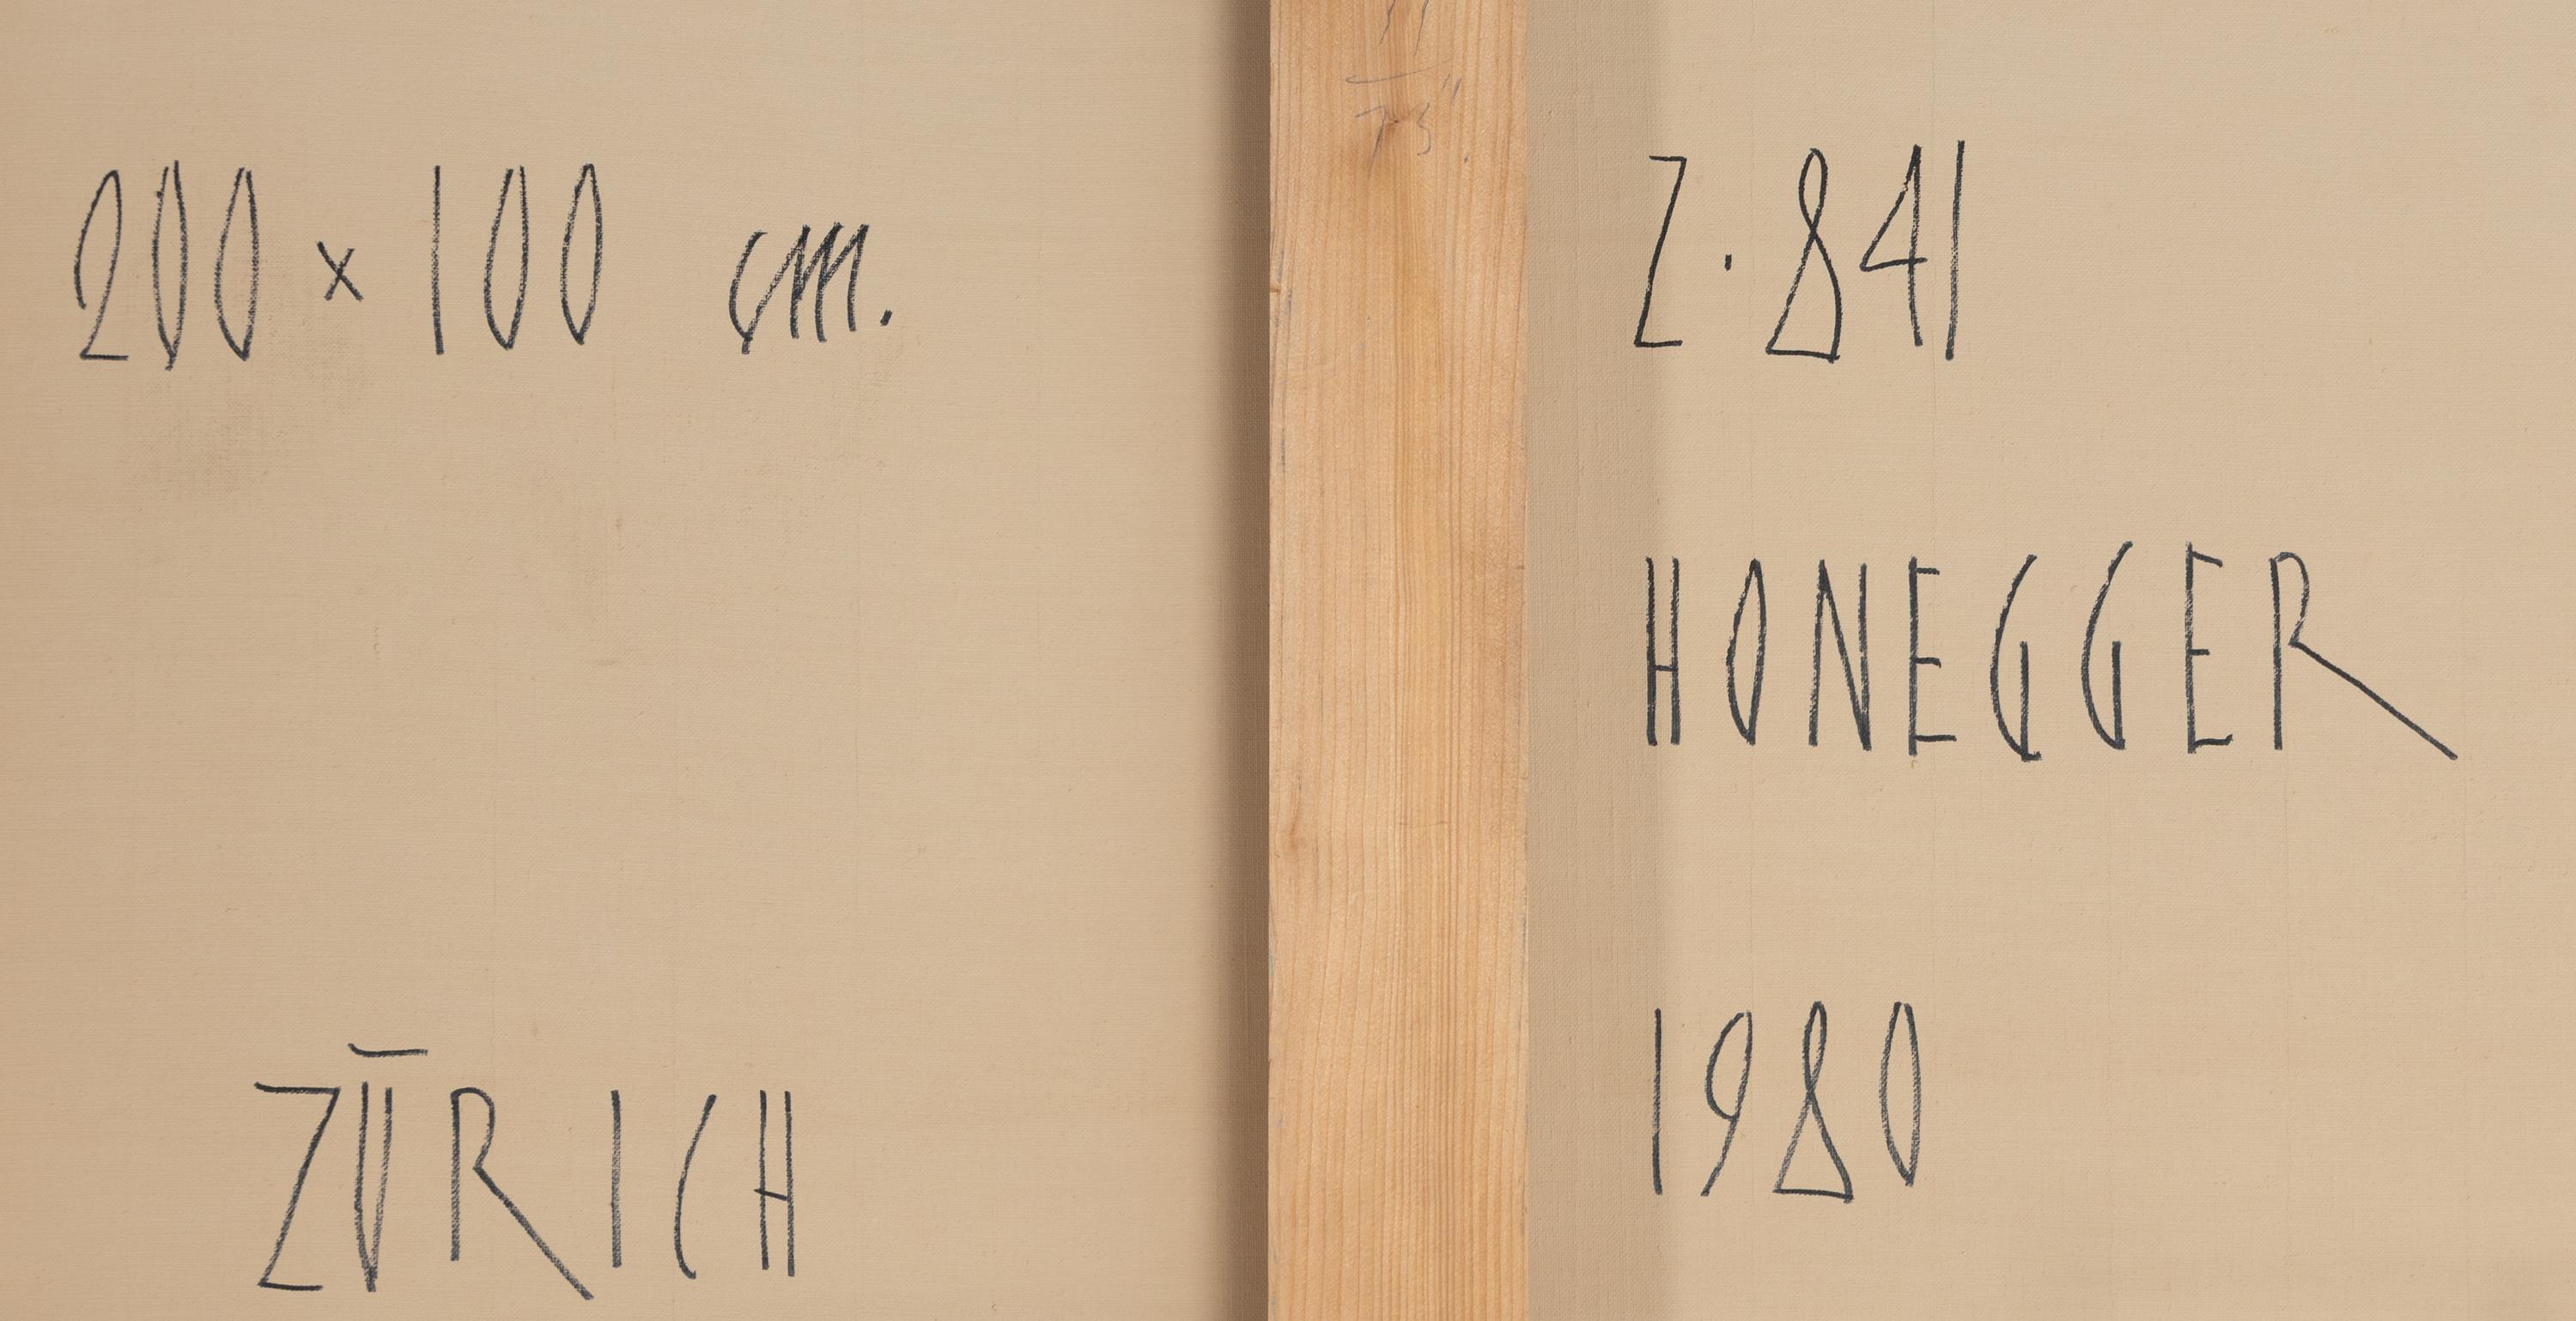 200 x 100 cm.
ZÜRICH
Z. 841
HONEGGER
1980